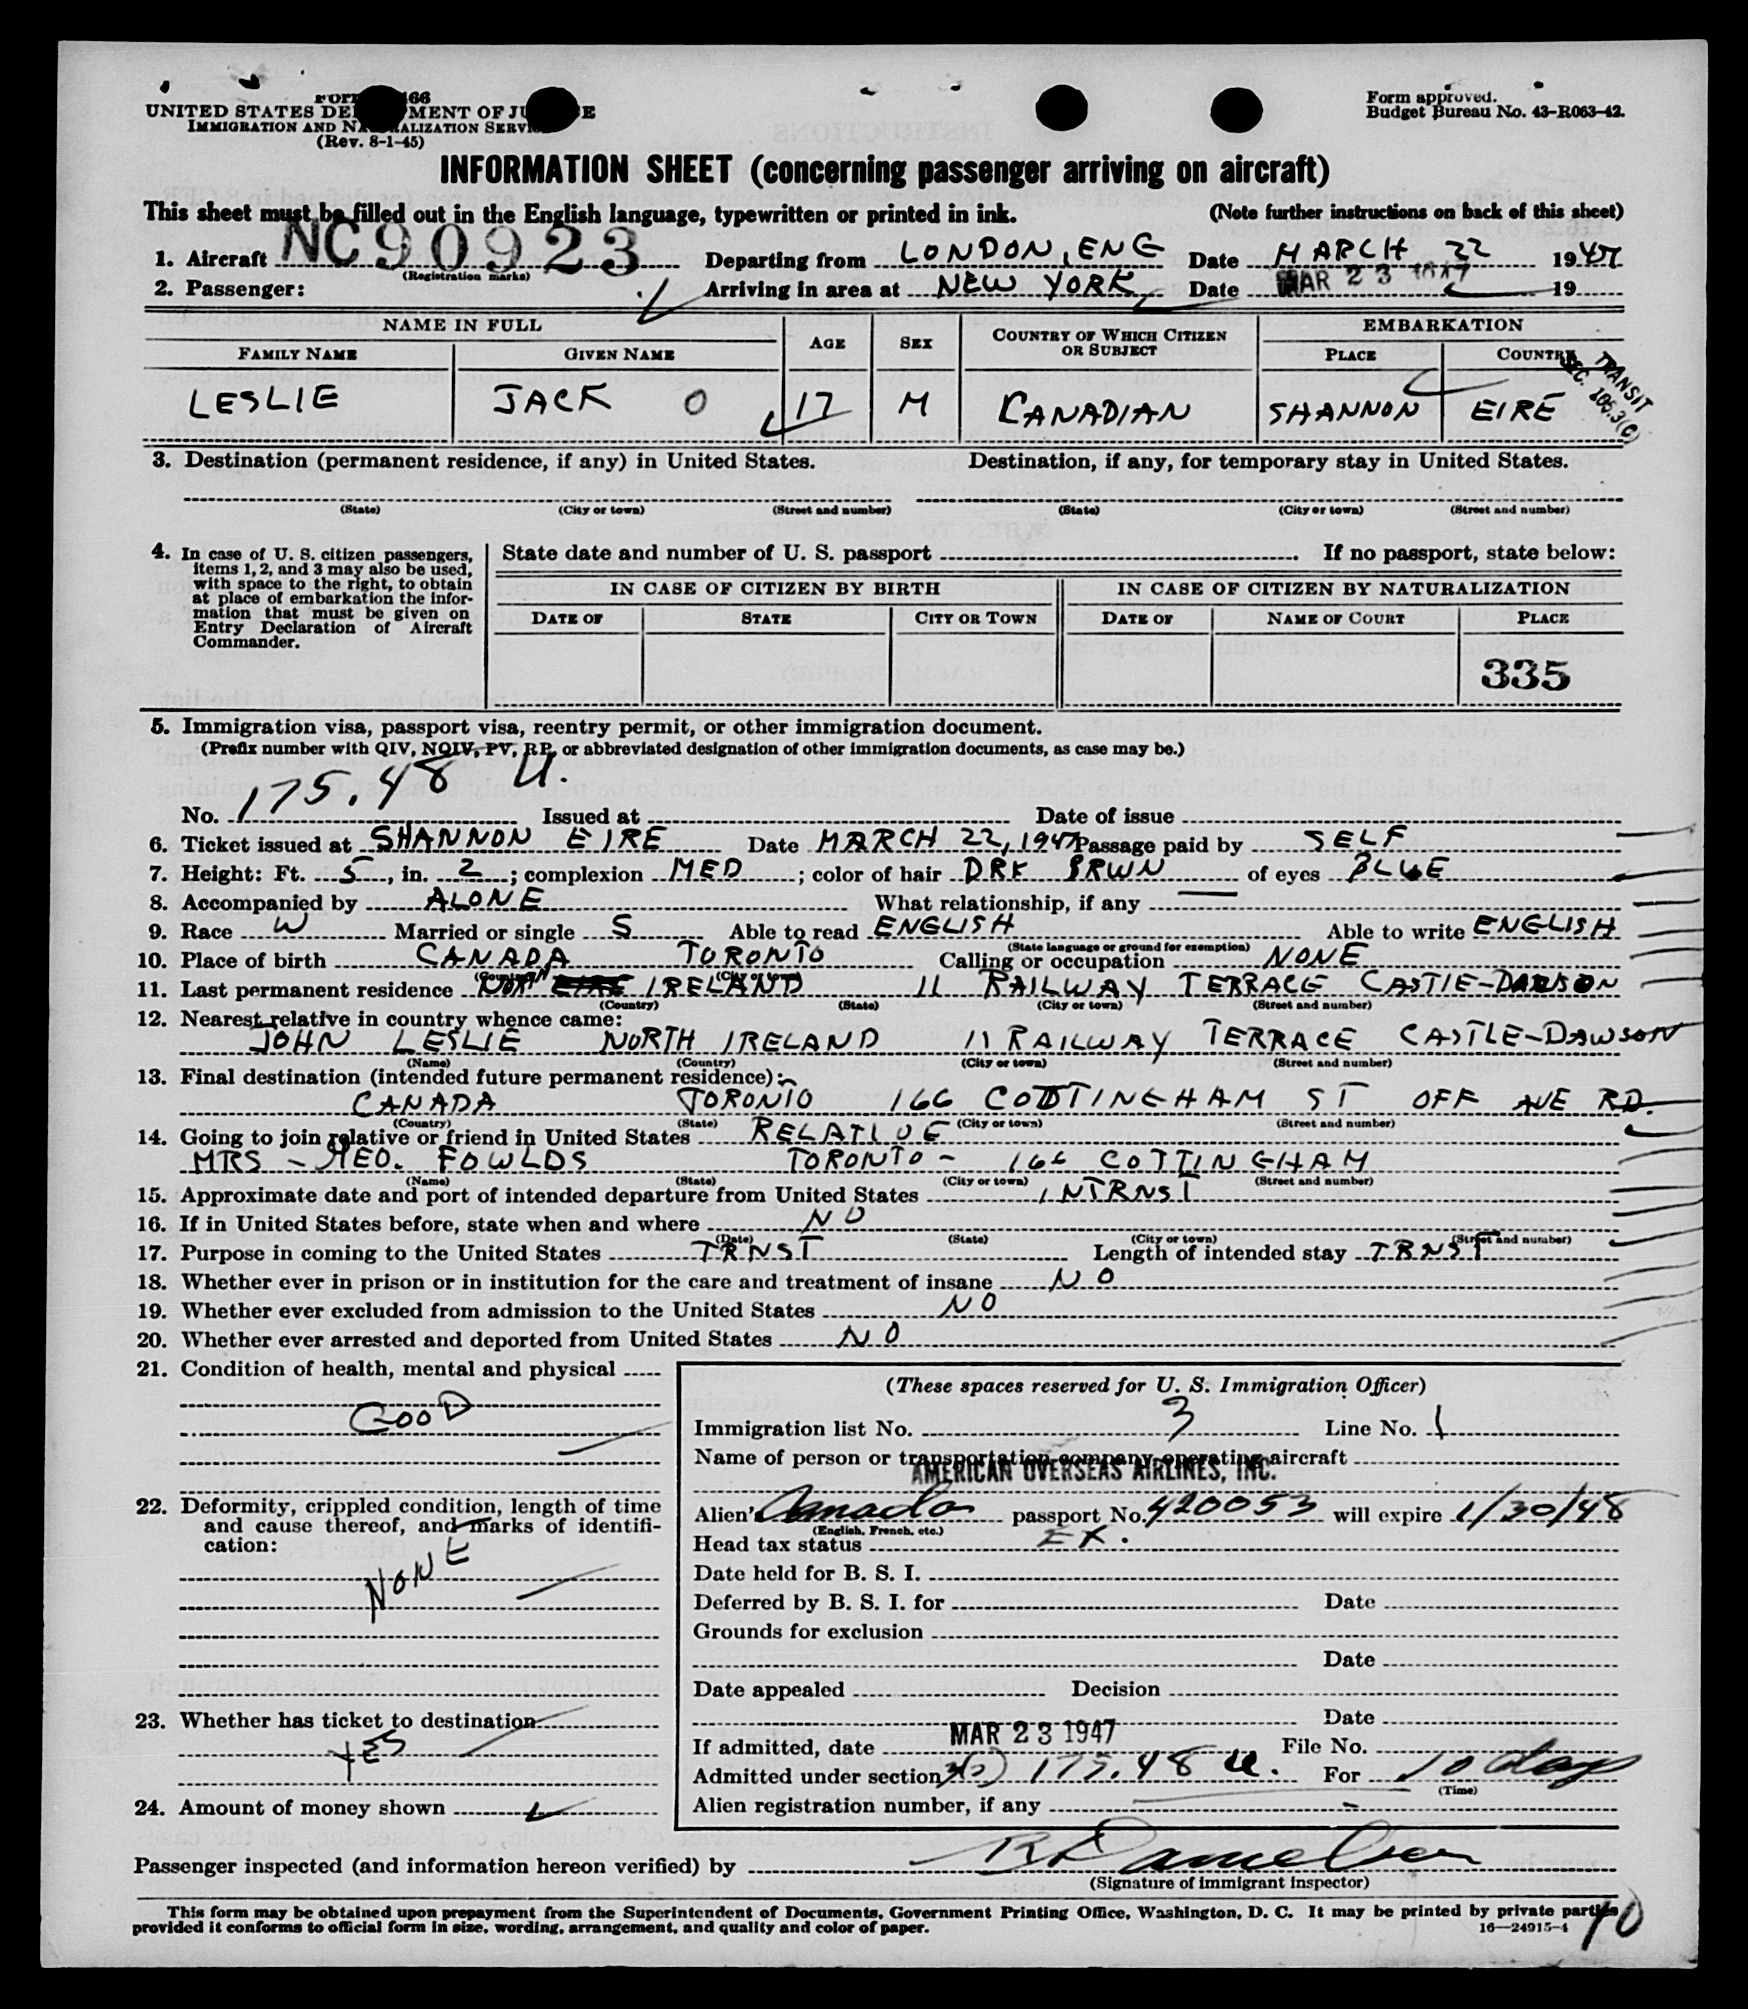 UNITED STATES DE MENT OF JU E
IMMIGRATION AND NA ALIZATION SERVI
(Rev. 8-1-45)
Form approved.
Budget Bureau No. 43-R063-42.
INFORMATION SHEET (concerning passenger arriving on aircraft)
This sheet must be filled out in the English language, typewritten or printed in ink. (Note further instructions on back of this sheet)
1. Aircraft NC90923 Departing from LONDON, ENG Date MARCH 22 1947
(Registration marks)
2. Passenger: Arriving in area at NEW YORK Date MAR 23 1947 19
NAME IN FULL AGE SEX COUNTRY OF WHICH CITIZEN OR SUBJECT EMBARKATION
FAMILY NAME GIVEN NAME PLACE COUNTRY
TRANSIT
SEC. 105.3(C)
LESLIE JACK O 17 M CANADIAN SHANNON EIRE
3. Destination (permanent residence, if any) in United States. Destination, if any, for temporary stay in United States.
(State) (City or town) (Street and number) (State) (City or town) (Street and number)
4. In case of U. S. citizen passengers,
items 1, 2, and 3 may also be used,
with space to the right, to obtain
at place of embarkation the infor-
mation that must be given on
Entry Declaration of Aircraft
Commander.
State date and number of U. S. passport . If no passport, state below:
IN CASE OF CITIZEN BY BIRTH IN CASE OF CITIZEN BY NATURALIZATION
DATE OF STATE CITY OR TOWN DATE OF NAME OF COURT PLACE
335
5. Immigration visa, passport visa, reentry permit, or other immigration document.
(Prefix number with QIV, NQIV, PV, RP, or abbreviated designation of other immigration documents, as case may be.)
No. 175.48 U. Issued at Date of issue
6. Ticket issued at SHANNON EIRE Date MARCH 22, 1947 Passage paid by SELF
7. Height: Ft. 5, in. 2; complexion MED; color of hair DRK BRWN of eyes BLUE
8. Accompanied by ALONE What relationship, if any —
9. Race W Married or single S Able to read ENGLISH Able to write ENGLISH
(State language or ground for exemption)
10. Place of birth CANADA TORONTO Calling or occupation NONE
(Country) (City or town)
11. Last permanent residence IRELAND 11 RAILWAY TERRACE CASTLE-DAWSON
(Country) (State) (City or town) (Street and number)
12. Nearest relative in country whence came:
JOHN LESLIE NORTH IRELAND 11 RAILWAY TERRACE CASTLE-DAWSON
(Name) (Country) (City or town) (Street and number)
13. Final destination (intended future permanent residence):
CANADA TORONTO 166 COTTINGHAM ST OFF AVE RD.
(Country) (State) (City or town) (Street and number)
14. Going to join relative or friend in United States RELATIVE
MRS - GEO. FOWLDS TORONTO - 166 COTTINGHAM
(Name) (State) (City or town) (Street and number)
15. Approximate date and port of intended departure from United States INTRNST
16. If in United States before, state when and where NO
(Date) (State) (City or town) (Street and number)
17. Purpose in coming to the United States TRNST Length of intended stay TRNST
18. Whether ever in prison or in institution for the care and treatment of insane NO
19. Whether ever excluded from admission to the United States NO
20. Whether ever arrested and deported from United States NO
21. Condition of health, mental and physical
GOOD
22. Deformity, crippled condition, length of time
and cause thereof, and marks of identifi-
cation:
NONE
23. Whether has ticket to destination
YES
24. Amount of money shown
(These spaces reserved for U. S. Immigration Officer)
Immigration list No. 3 Line No. 1
Name of person or transportation company operating aircraft
AMERICAN OVERSEAS AIRLINES, INC.
Alien's Canada passport No. 420053 will expire 1/30/48
(English, French, etc.)
Head tax status EX.
Date held for B. S. I.
Deferred by B. S. I. for Date
Grounds for exclusion
Date
Date appealed Decision
Date
If admitted, date MAR 23 1947 File No.
Admitted under section 175.48 U. For 10 days
(Time)
Alien registration number, if any
Passenger inspected (and information hereon verified) by
(Signature of immigrant inspector)
This form may be obtained upon prepayment from the Superintendent of Documents, Government Printing Office, Washington, D. C. It may be printed by private parties
provided it conforms to official form in size, wording, arrangement, and quality and color of paper. 16—24915-4